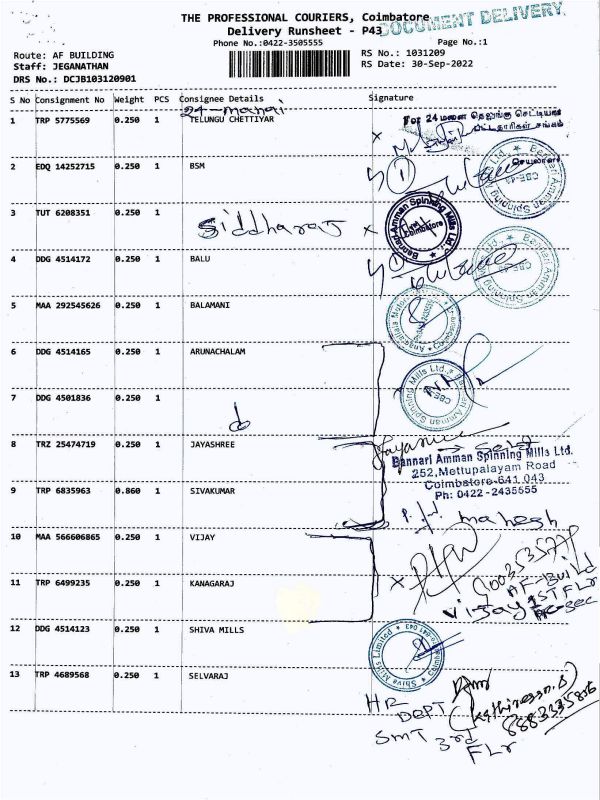 THE PROFESSIONAL COURIERS, Coimbatore
DOCUMENT DELIVERY
Delivery Runsheet - P43
Phone No.:0422-3505555
Page No.:1
Route: AF BUILDING
RS No.: 1031209
Staff: JEGANATHAN
RS Date: 30-Sep-2022
DRS No.: DCJB103120901
S No Consignment No Weight PCS Consignee Details Signature
24-manai
For 24 மனை தெலுங்கு செட்டியார்
1 TRP 5775569 0.250 1 TELUNGU CHETTIYAR
பட்டதாரிகள் சங்கம்
செயலாளர்
2 EDQ 14252715 0.250 1 BSM
Bannari Amman Spinning CBE-43
3 TUT 6208351 0.250 1
Siddharaj
Bannari Amman Spinning Mills Ltd., Coimbatore
4 DDG 4514172 0.250 1 BALU
Bannari Amman Spinning CBE-43
5 MAA 292545626 0.250 1 BALAMANI
6 DDG 4514165 0.250 1 ARUNACHALAM
Bannari Amman Spinning Mills Ltd. CBE-43
7 DDG 4501836 0.250 1
8 TRZ 25474719 0.250 1 JAYASHREE
Jayashree
Bannari Amman Spinning Mills Ltd.
252,Mettupalayam Road
Coimbatore-641 043
Ph: 0422-2435555
9 TRP 6835963 0.860 1 SIVAKUMAR
Mahesh
10 MAA 566606865 0.250 1 VIJAY
11 TRP 6499235 0.250 1 KANAGARAJ
AF-Build
Vijay 1ST FLr
12 DDG 4514123 0.250 1 SHIVA MILLS
Shiva Mills Limited Coimbatore-641 043
13 TRP 4689568 0.250 1 SELVARAJ
HR
DEPT
(Kathiresan.S)
8883335815
SMT 3rd
FLr